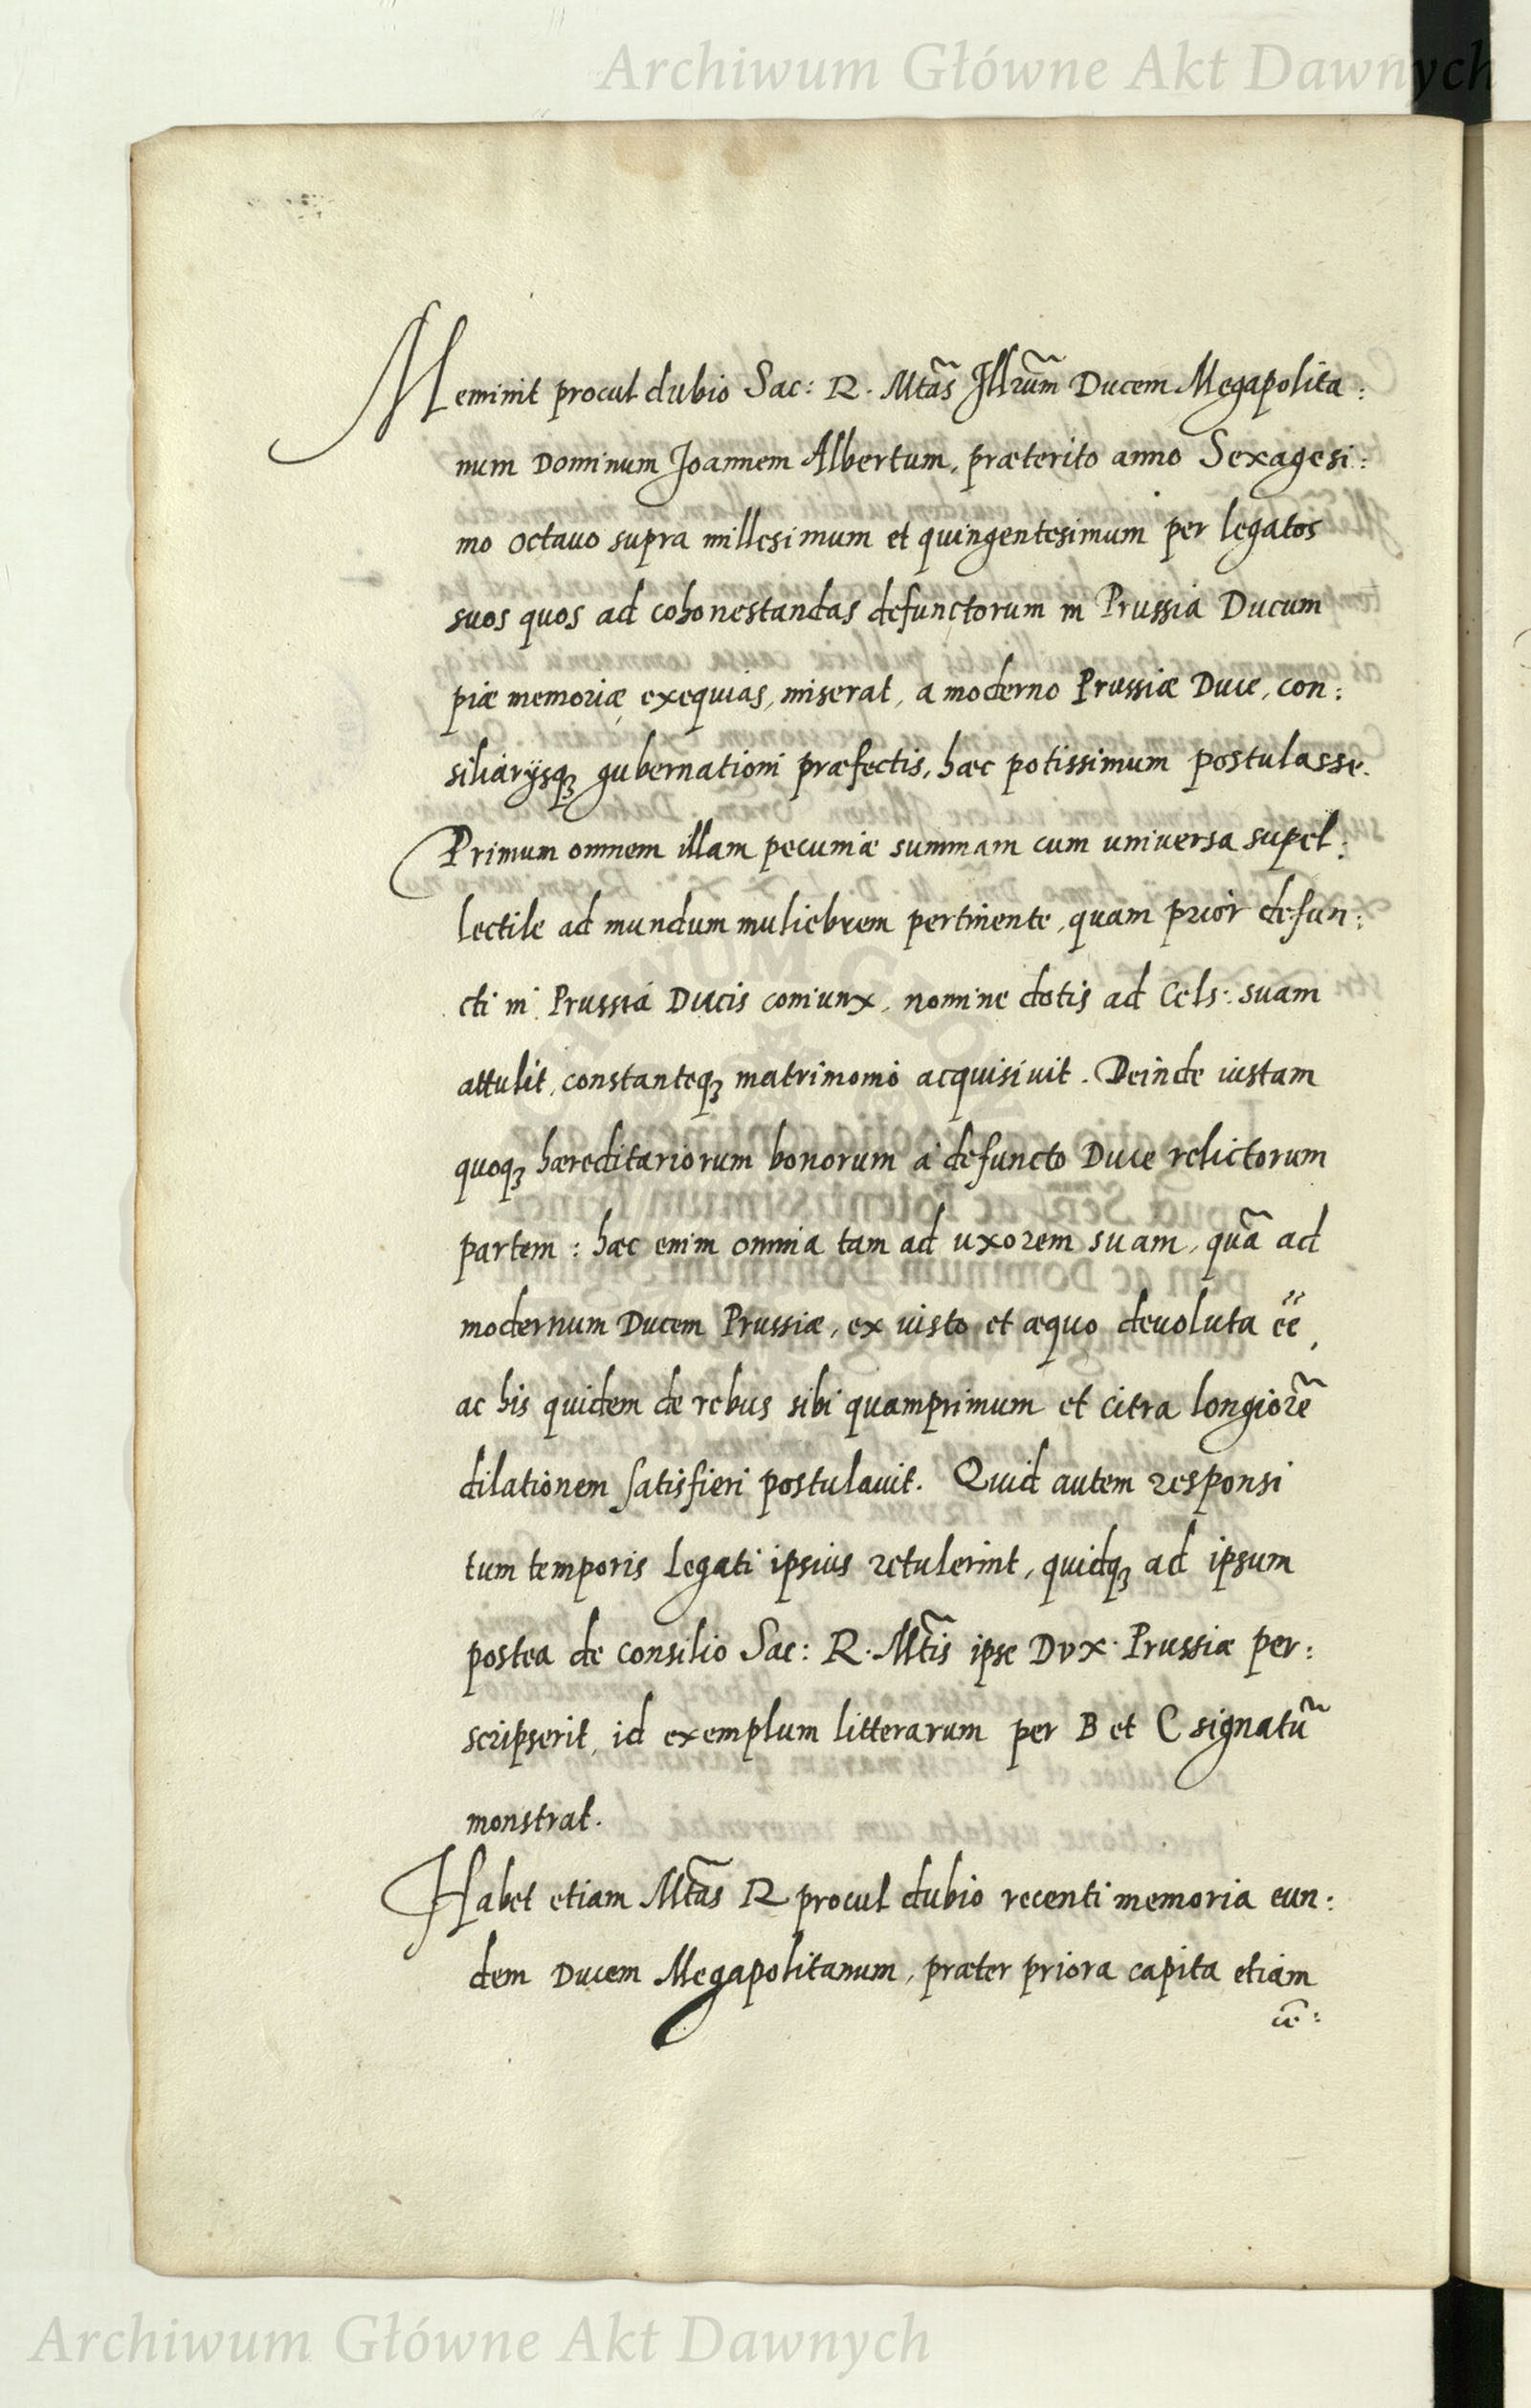 Archiwum Główne Akt Dawnych
Meminit procul dubio Sac: R. Mtãs Illrũm Ducem Megapolita:
num Dominum Joannem Albertum, præterito anno Sexagesi:
mo octauo supra millesimum et quingentesimum per legatos
suos quos ad cohonestandas defunctorum in Prussia Ducum
piæ memoriæ exequias, miserat, a moderno Prussiæ Duce, con:
siliarijsq3 gubernationi præfectis, hæc potissimum postulasse.
Primum omnem illam pecuniæ summam cum universa supel:
lectile ad mundum muliebrem pertinente, quam prior defun:
cti in Prussia Ducis coniunx, nomine dotis ad Cels: suam
attulit, constanteq3 matrimonio acquisiuit. Deinde iustam
quoq3 hæreditariorum bonorum à defuncto Duce relictorum
partem: hæc enim omnia tam ad uxorem suam, quã ad
modernum Ducem Prussiæ, ex iusto et æquo deuoluta e͂e͂,
ac his quidem de rebus sibi quamprimum et citra longiorẽ
dilationem satisfieri postulauit. Quid autem responsi
tum temporis Legati ipsius retulerint, quidq3 ad ipsum
postea de consilio Sac: R. Mtĩs ipse Dvx Prussiæ per:
scripserit, id exemplum litterarum per B et C signatũ
monstrat.
Habet etiam Mtãs R procul dubio recenti memoria eun:
dem Ducem Megapolitanum, præter priora capita etiam
Archiwum Główne Akt Dawnych